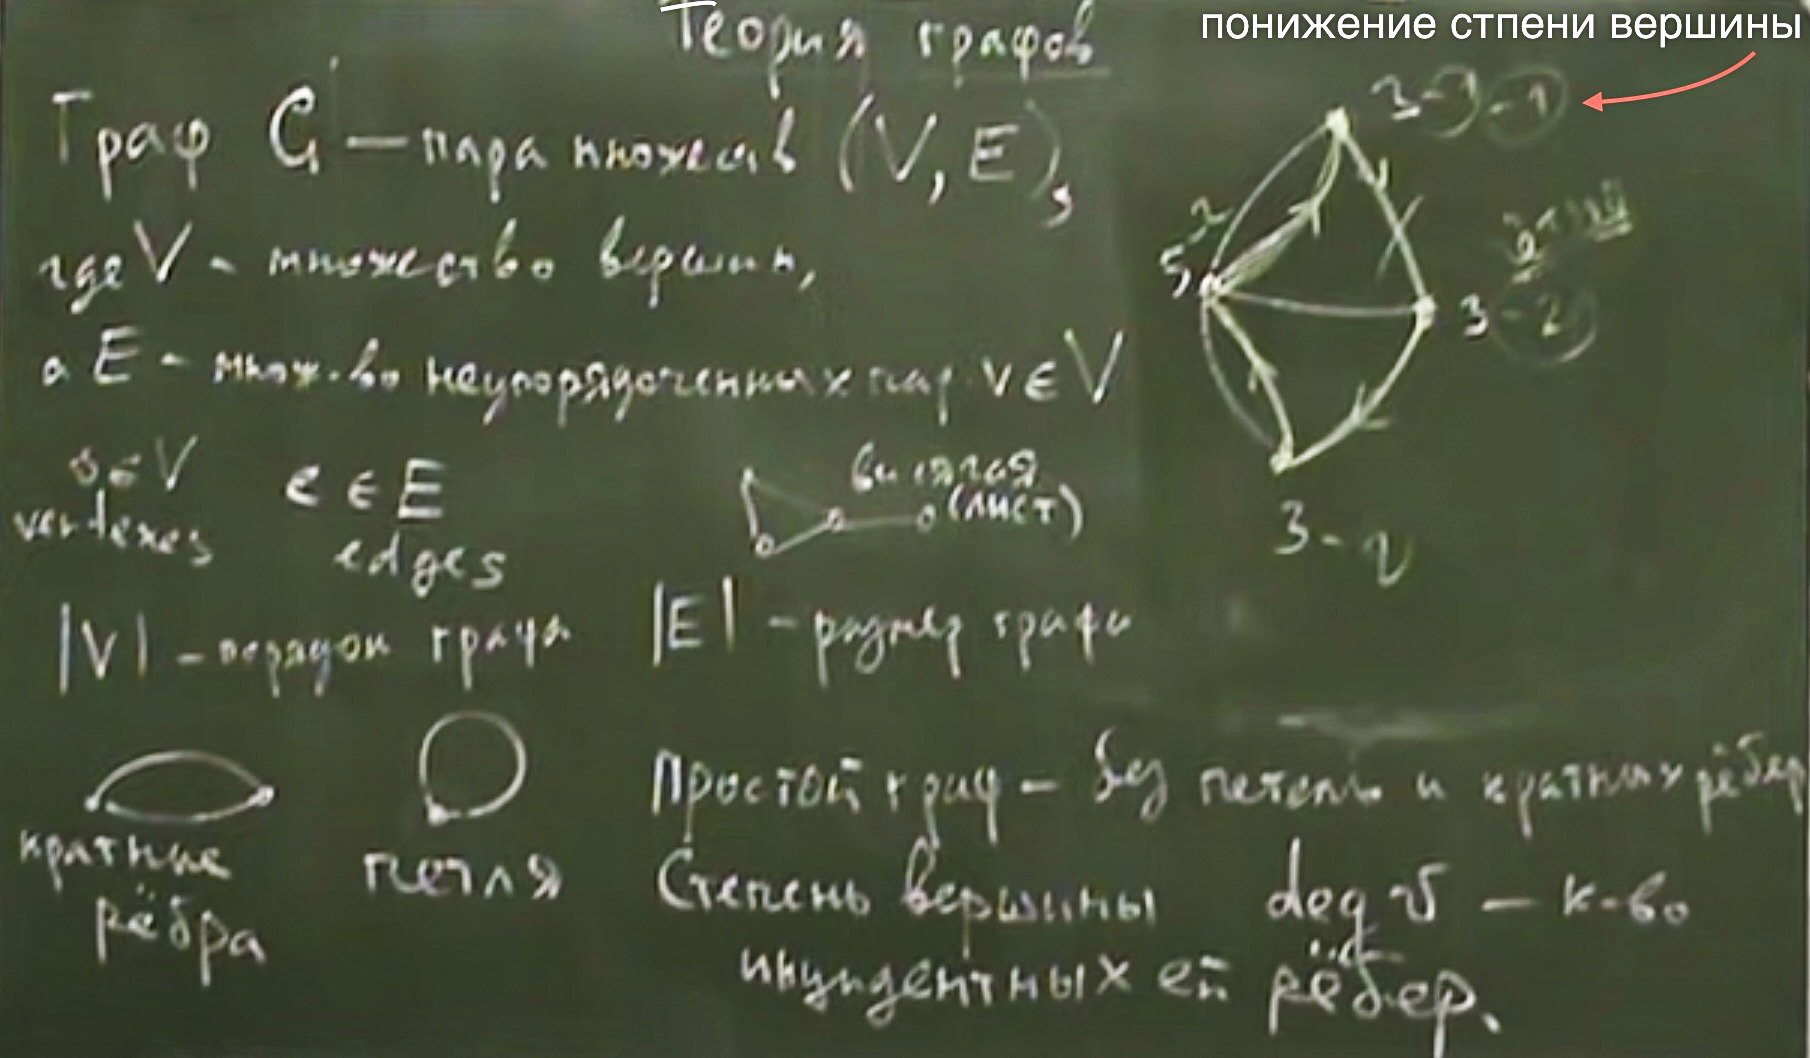 Теория графов
понижение стпени вершины
Граф G – пара множеств (V, E),
где V - множество вершин,
а E - множ-во неупорядоченных пар v ∈ V
v ∈ V e ∈ E
vertexes edges
висячая
(лист)
|V| - порядок графа |E| - размер графа
3-1-1
5
3-2
3-2
кратные
рёбра
петля
Простой граф - без петель и кратных рёбер
Степень вершины deg v – к-во
инцидентных ей рёбер.